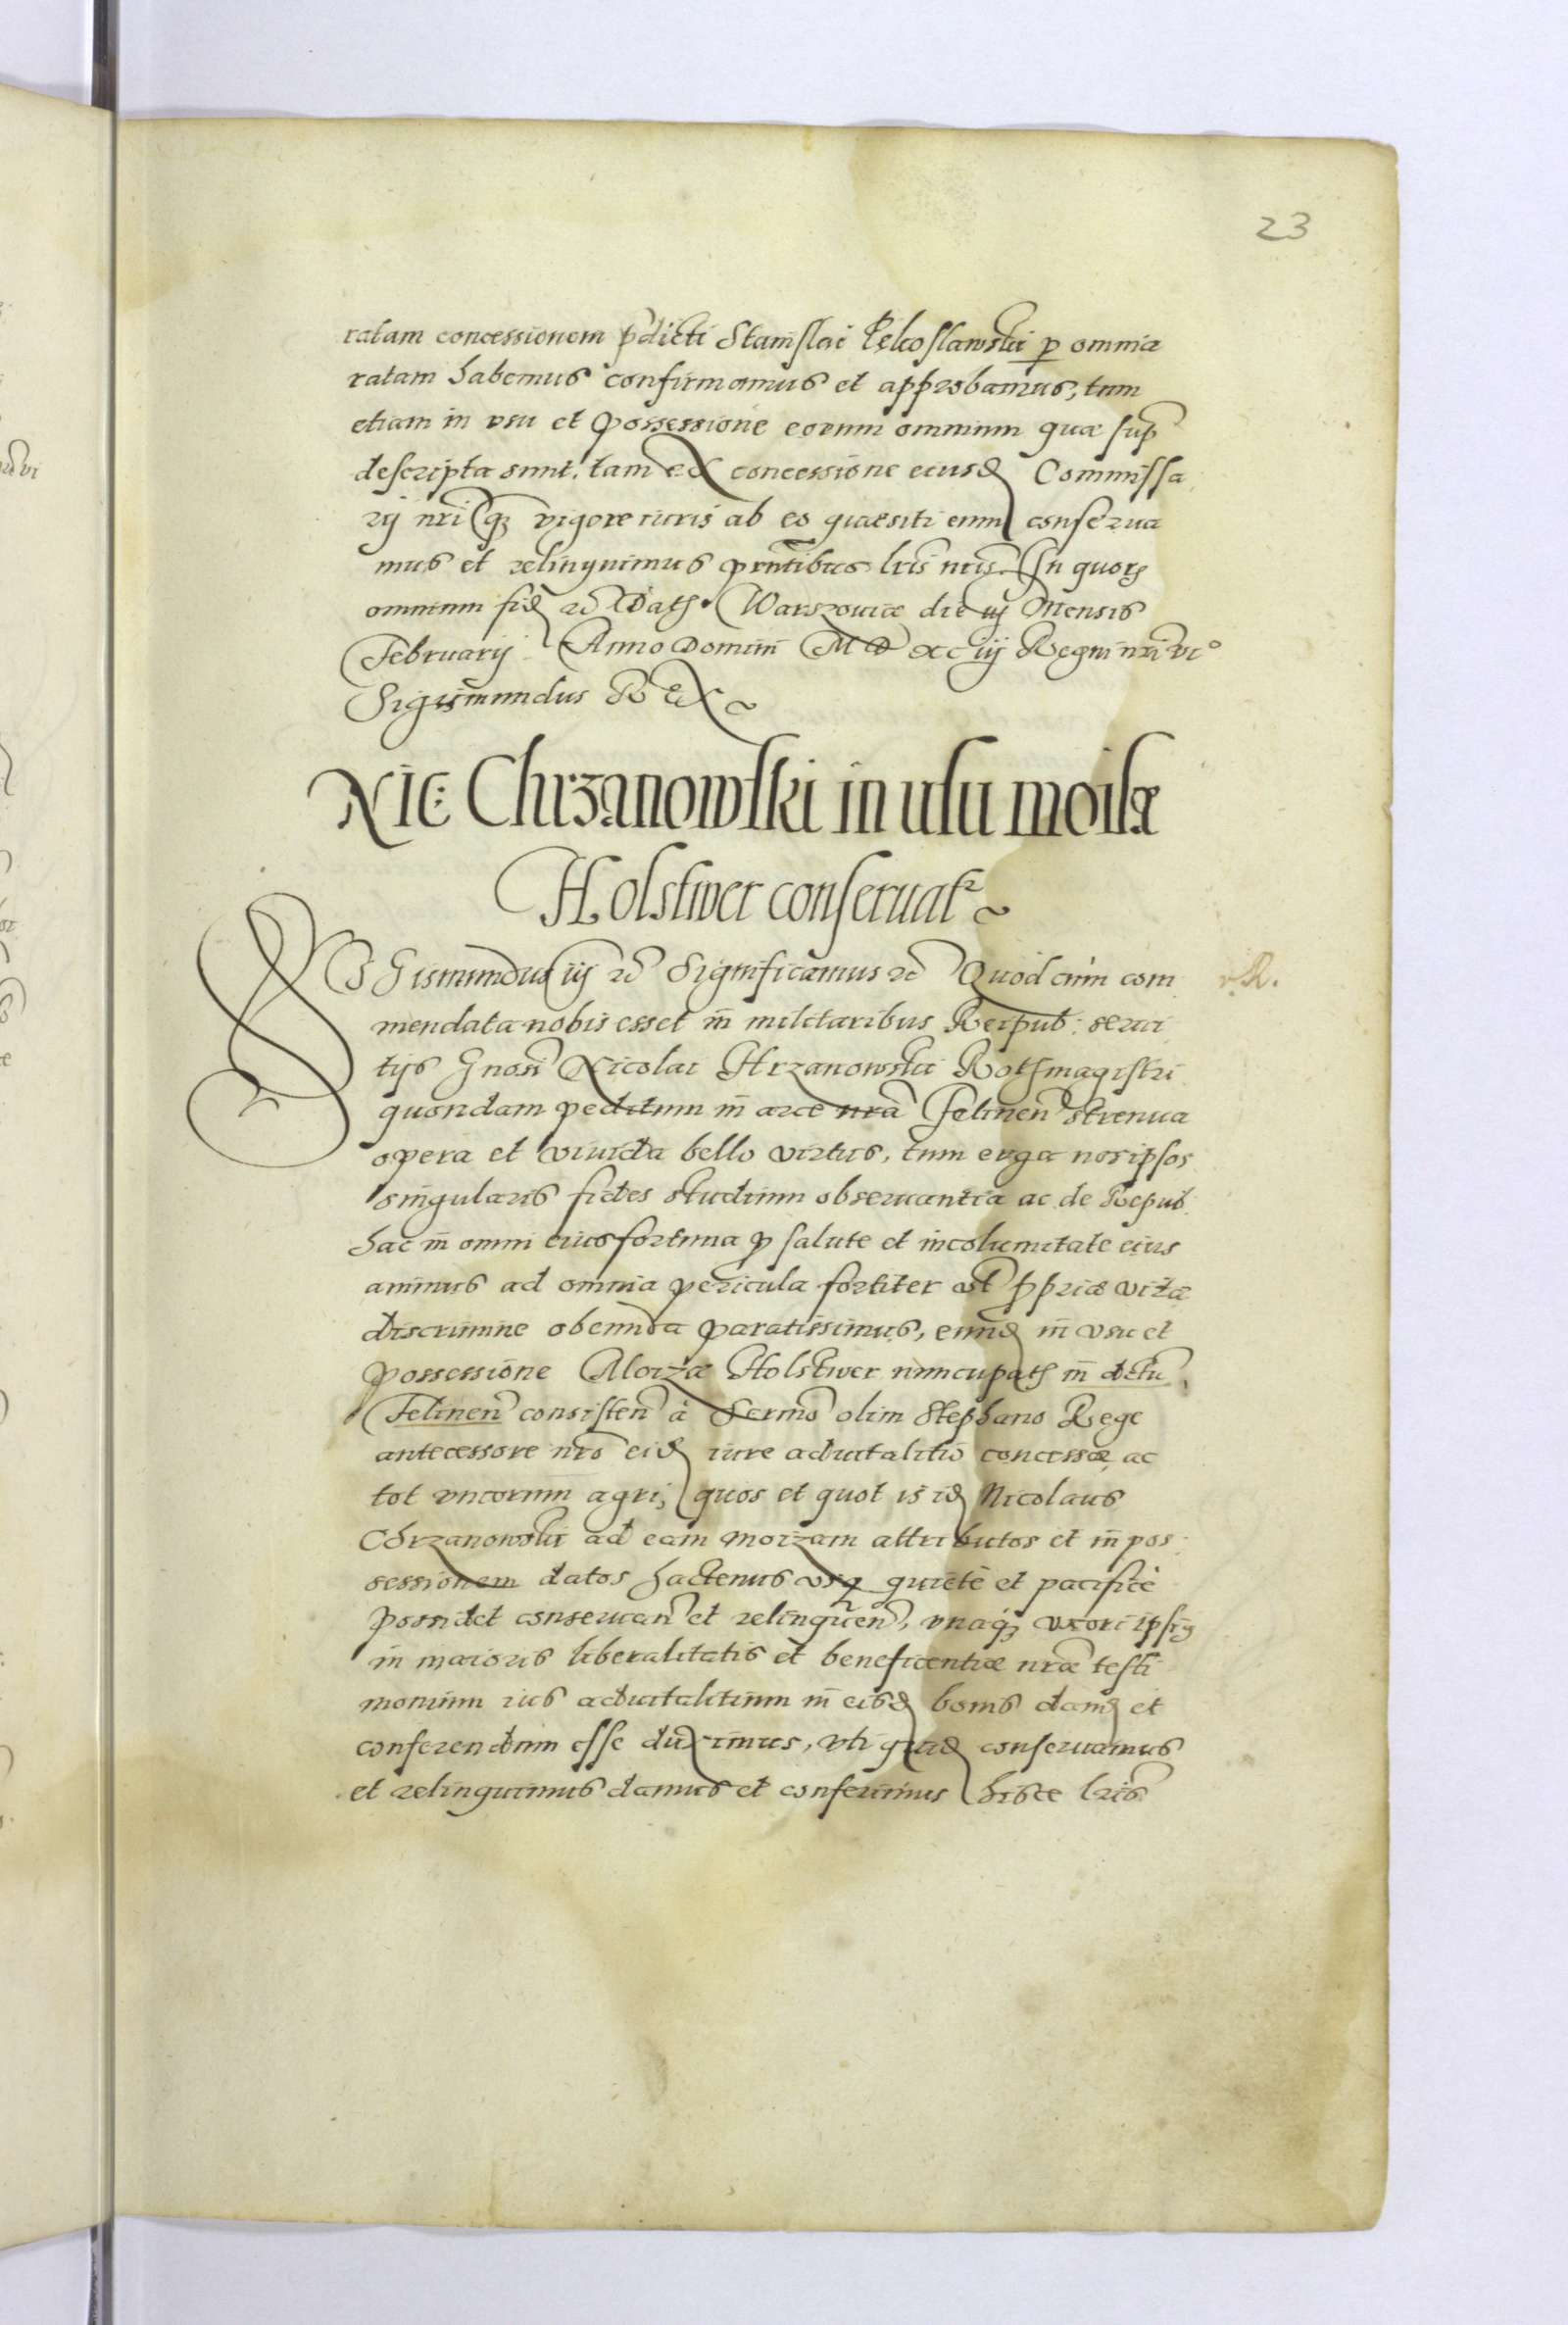 23
ratam concessionem pdicti Stanislai Pękosławski p omnia
ratam habemus confirmamus et approbamus, tum
etiam in vsu et possessione eorum omnium quæ sup
descripta sunt, tam ex concessione eiusd Commissa
rij nri qz vigore iuris ab eo quæsiti eum conserua
mus et relinquimus prntibus lris nris. In quorz
omnium fid rc Dath. Warszowiæ die iij Mensis
February Anno Domini MD xciij Regni nri vio
Sigismundus REX
NIC: Chrzanowski in usu moisæ
Holstwer conseruatr
SIGismundus iij rc Significamus rc Quod cum com
mendata nobis esset in militaribus Reipub: serui
tijs Gnosi Nicolai Hrzanowski Rothmagistri
quondam peditum in arce nra Felinen strenua
opera et viuida bello virtus, tum erga nos ipsos
singularis fides studium obseruantia ac de Repub
hac in omni eius fortuna p salute et incolumitate eius
animus ad omnia pericula fortiter vel ppriæ vitæ
discrimine obeunda paratissimus, eund in vsu et
possessione Moizæ Holstwer nuncupath in dctu
Felinen consisten à Sermo olim Stephano Rege
antecessore nro eid iure aduitalitio concessæ, ac
tot vncorum agri, quos et quot is id Nicolaus
Chrzanowski ad eam moizam attributos et in pos
sessionem datos hactenus vsq quietè et pacificè
possidet conseruan et relinquen, vnaqz vxori ipsiq
in maioris liberalitatis et beneficentiæ nræ testi
monium ius aduitalitium in eisd bonis dand et
conferendum esse duximus, vti quid conseruamus
et relinquimus damus et conferimus hisce lris